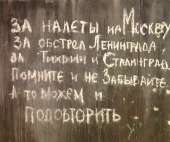 За налеты на Москву
За обстрел Ленинграда,
за Тихвин и Сталинград
Помните и не забывайте,
А то можем и
повторить